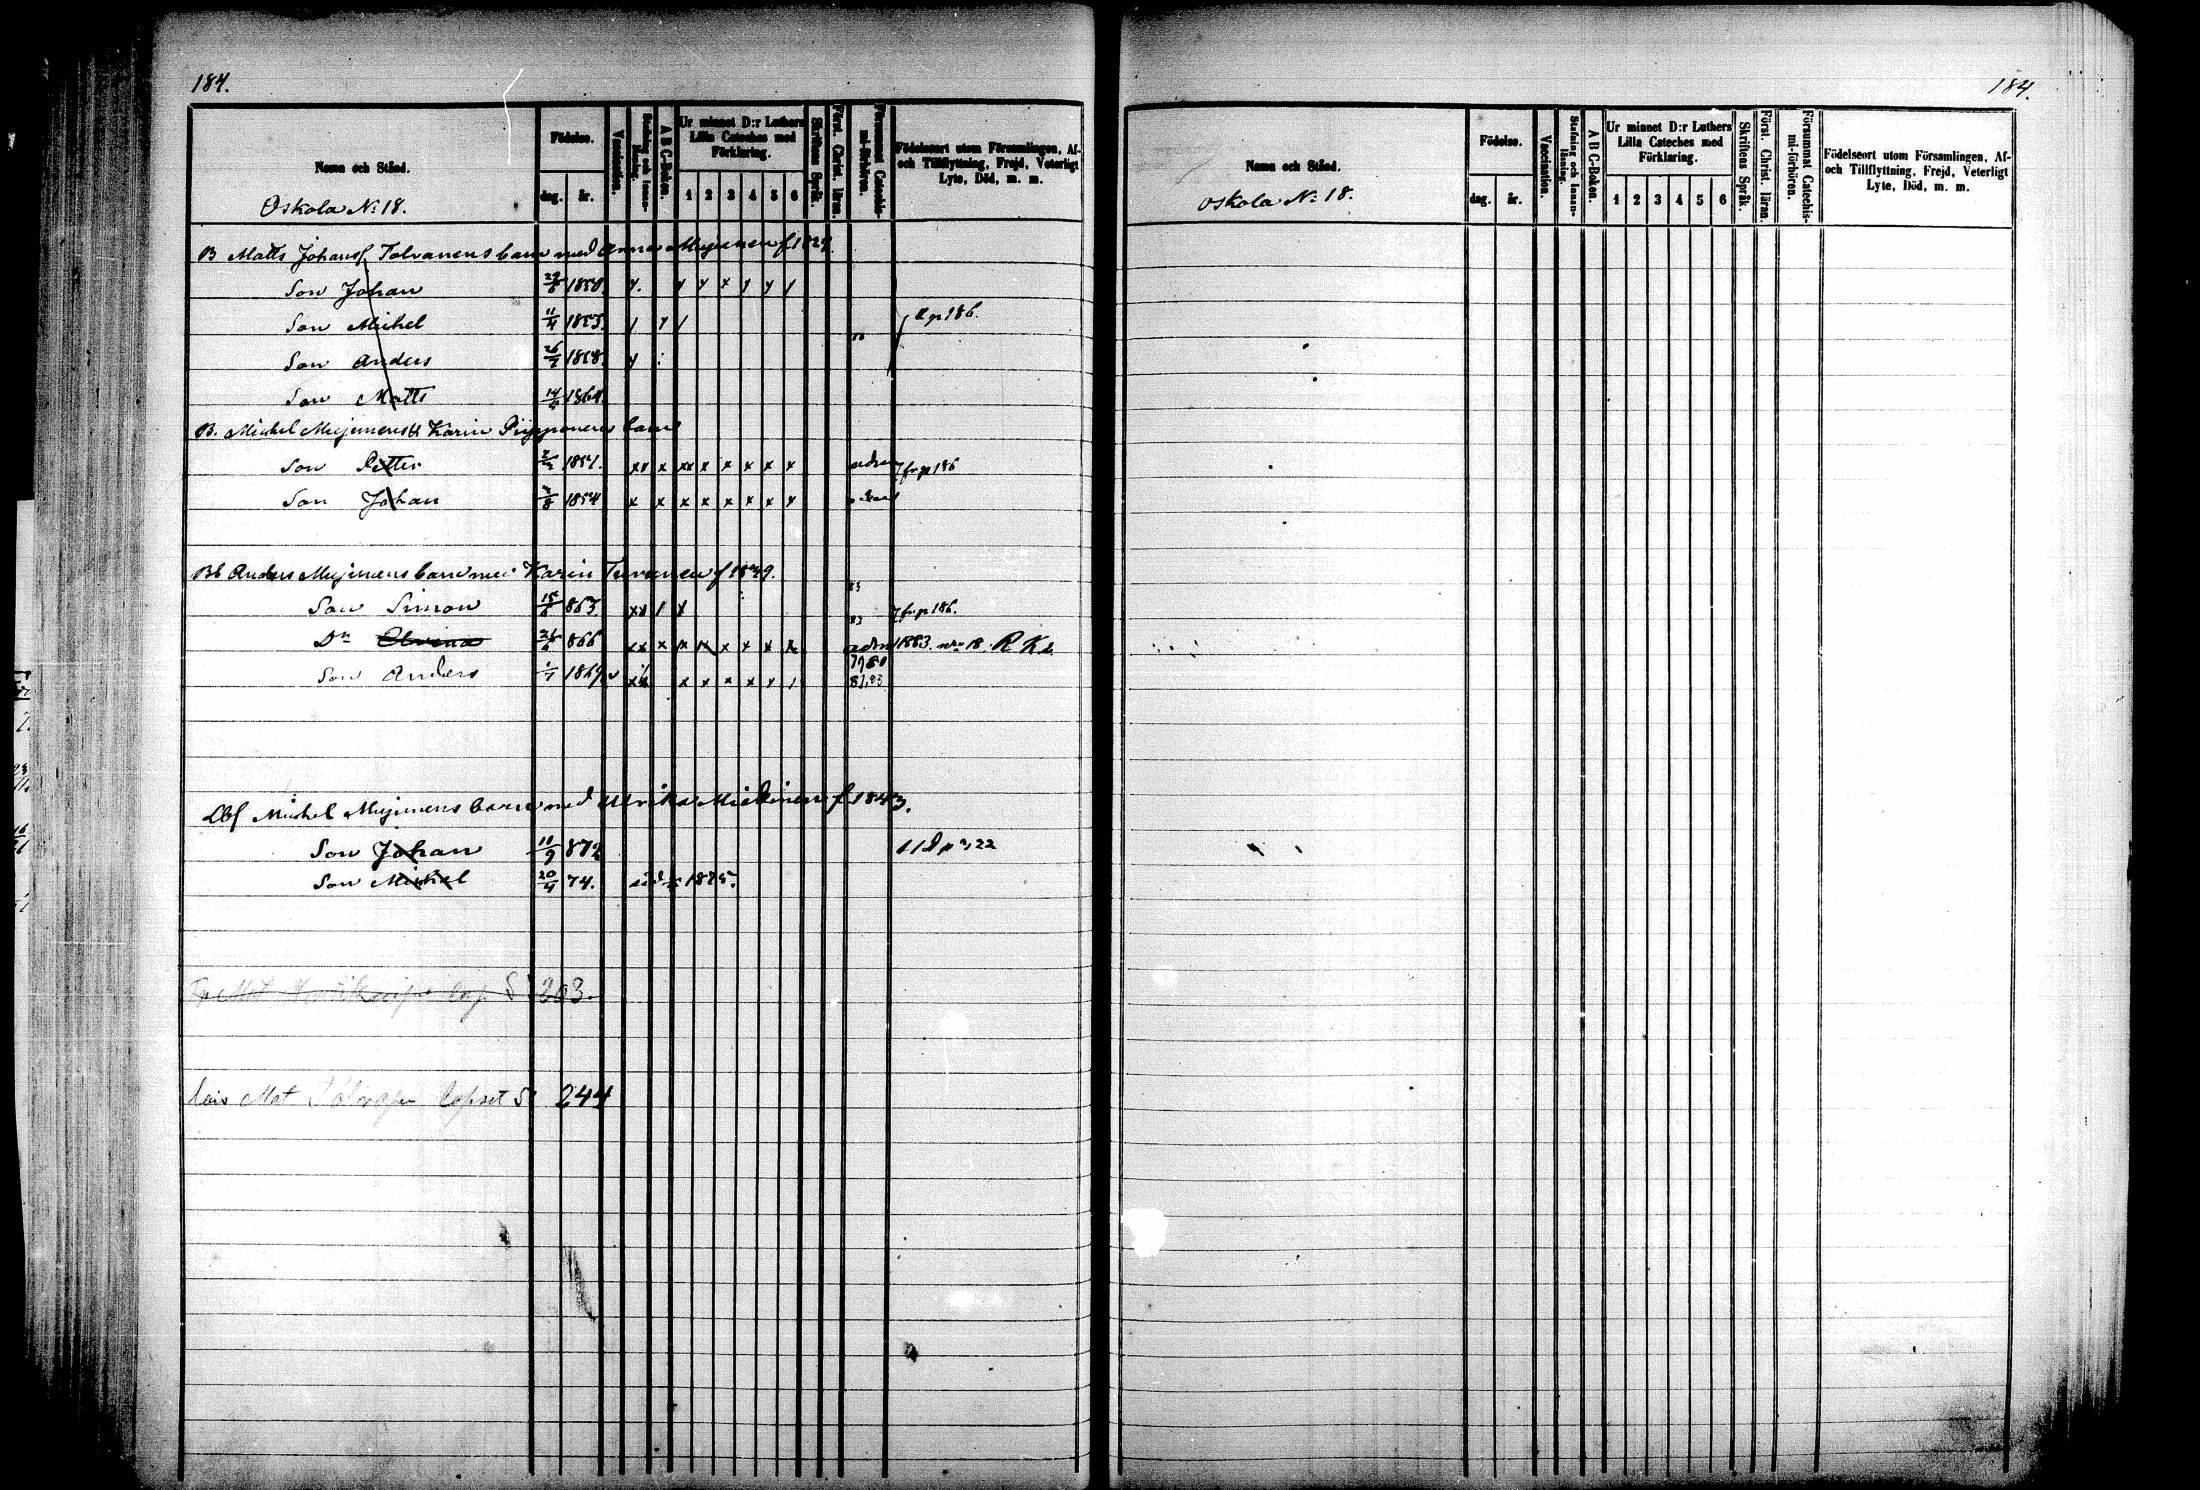 184.
Namn och Stånd.
Födelse.
dag. år.
Vaccination.
Stafning och Innanläsning.
A B C-Boken.
Ur minnet D:r Luthers Lilla Cateches med Förklaring.
1 2 3 4 5 6
Skriftens Språk.
Först. Christ. läran.
Försummat Catechismi-förhören.
Födelseort utom Församlingen, Af- och Tillflyttning, Frejd, Veterligt Lyte, Död, m. m.
Oskola No: 18.
B Matts Johansf Tolvanens barn med Anna Mujunen f 1829
Son Johan 1850. x. x x x x x /
Son Michel 11/4 1853. / x / p 186.
Son Anders 1858. x
Son Matts 14/9 1864.
B. Michel Mujunens & Karin Piipponens barn
Son Petter 1851. xx x xx x x x x x adm fr p 186
Son Johan 1854 x x x x x x x x
Bb Anders Mujunens barn med Karin Turunen f 1849. 83
Son Simon 15/6 863. xx / x 83 fr p 186.
Dn Elvina 26/6 866 xx x x x x x x x adm 1883. No 18. R. K.
Son Anders 1/7 1869 v xx x x x x x / 79 80 81, 83
Lbf Michel Mujunens barn med Ulrika Miettinen f. 1843.
Son Johan 11/9 872 22
Son Michel 20/4 74. död 1875.
S 203.
lois Mat Tolvasen lapset S 244
184.
Namn och Stånd.
Födelse.
dag. år.
Vaccination.
Stafning och Innanläsning.
A B C-Boken.
Ur minnet D:r Luthers Lilla Cateches med Förklaring.
1 2 3 4 5 6
Skriftens Språk.
Först. Christ. läran.
Försummat Catechismi-förhören.
Födelseort utom Församlingen, Af- och Tillflyttning, Frejd, Veterligt Lyte, Död, m. m.
Oskola No: 18.